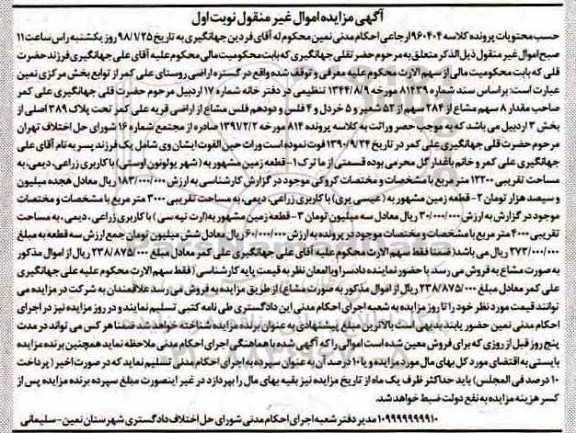 آگهی مزایده اموال غیر منقول نوبت اول
حسب محتویات پرونده کلاسه ۹۶۰۴۰۴ ارجاعی احکام مدنی نمین محکوم له آقای فردین جهانگیری به تاریخ ۹۸/۱/۲۵ روز یکشنبه راس ساعت ۱۱
صبح اموال غیر منقول ذیل الذکر متعلق به مرحوم حضر تقلی جهانگیری که بابت محکومیت مالی محکوم علیه آقای علی جهانگیری فرزند حضرت
قلی که بابت محکومیت مالی از سهم الارث محکوم علیه معرفی و توقف شده واقع در گستره اراضی روستای علی کمر از توابع بخش مرکزی نمین
عبارت است: براساس سند شماره ۸۱۴۳۹ مورخه ۱۳۴۴/۸/۹ تنظیمی در دفتر خانه شماره ۱۷ اردبیل مرحوم حضرت قلی جهانگیری علی کمر
صاحب مقدار ۸ سهم مشاع از ۲۸۴ سهم از ۵۳ شعیر و ۵ خردل و ۴ فلس و دودهم فلس مشاع از اراضی قریه علی کمر تحت پلاک ۳۸۹ اصلی از
بخش ۳ اردبیل می باشد که به موجب حصر وراثت به کلاسه پرونده ۸۱۴ مورخه ۱۳۹۱/۲/۲ صادره از مجتمع شماره ۱۶ شورای حل اختلاف تهران
مرحوم حضرت قلی جهانگیری علی کمر در تاریخ ۱۳۹۰/۹/۲۴ فوت نموده است وراث حین الفوت ایشان وی شامل یک فرزند پسر به نام آقای علی
جهانگیری علی کمر و خانم باغدار گل محرمی بوده قسمتی از ما ترک ۱- قطعه زمین مشهور به (شهر یولونون اوستی) با کاربری زراعی، دیمی، به
مساحت تقریبی ۱۲۲۰۰ متر مربع با مشخصات و مختصات کروکی موجود در گزارش کارشناسی به ارزش ۱۸۳/۰۰۰/۰۰۰ ریال معادل هجده میلیون
و سیصد هزار تومان ۲- قطعه زمین مشهور به (عیسی یری) با کاربری زراعی، دیمی، به مساحت تقریبی ۳۰۰۰ متر مربع با مشخصات و مختصات
موجود در گزارش به ارزش ۳۰/۰۰۰/۰۰۰ ریال معادل سه میلیون تومان ۳- قطعه زمین مشهور به (ارت تپه سی) با کاربری زراعی، دیمی، به مساحت
تقریبی ۴۰۰۰ متر مربع با مشخصات و مختصات موجود در پرونده به ارزش ۶۰/۰۰۰/۰۰۰ ریال معادل شش میلیون تومان جمع ارزش سه قطعه به مبلغ
۲۷۳/۰۰۰/۰۰۰ ریال می باشد (ضمنا فقط سهم الارث محکوم علیه آقای علی جهانگیری علی کمر معادل مبلغ ۲۳۸/۸۷۵/۰۰۰ ریال از اموال مذکور
به صورت مشاع به فروش می رسد با حضور نماینده دادسرا وبالمعان نظر به قیمت پایه کارشناسی (فقط سهم الارث محکوم علیه علی جهانگیری
علی کمر معادل مبلغ ۲۳۸/۸۷۵/۰۰۰ ریال از اموال مذکور به صورت مشاع) از طریق مزایده به فروش می رسد علاقمندان به شرکت در مزایده می
توانند قیمت مورد نظر خود را تا روز مزایده به شعبه اجرای احکام مدنی این دادگستری طی نامه کتبی تسلیم نمایند و در روز مزایده نیز در اجرای
احکام مدنی نمین حضور یابند بدیهی است بالاترین مبلغ پیشنهادی به عنوان برنده مزایده شناخته خواهد شد ضمنا هر کس می تواند در مدت
پنج روز قبل از روزی که برای فروش معین شده است اموالی را که آگهی شده با هماهنگی اجرای احکام مدنی ملاحظه نماید همچنین برنده مزایده
بایستی به اقتضای مورد کل بهای مال مورد مزایده و یا ۱۰ درصد آن به عنوان سپرده به اجرای احکام مدنی تسلیم نماید که در صورت اخیر (پرداخت
۱۰ درصد فی المجلس) باید حداکثر ظرف یک ماه از تاریخ مزایده نیز بقیه بهای مال را بپردازد در غیر اینصورت مبلغ سپرده برنده مزایده پس از
کسر هزینه مزایده به نفع دولت ضبط خواهد شد.
۱۰۹۹۹۹۹۹۹۱۰ مدیر دفتر شعبه اجرای احکام مدنی شورای حل اختلاف دادگستری شهرستان نمین- سلیمانی